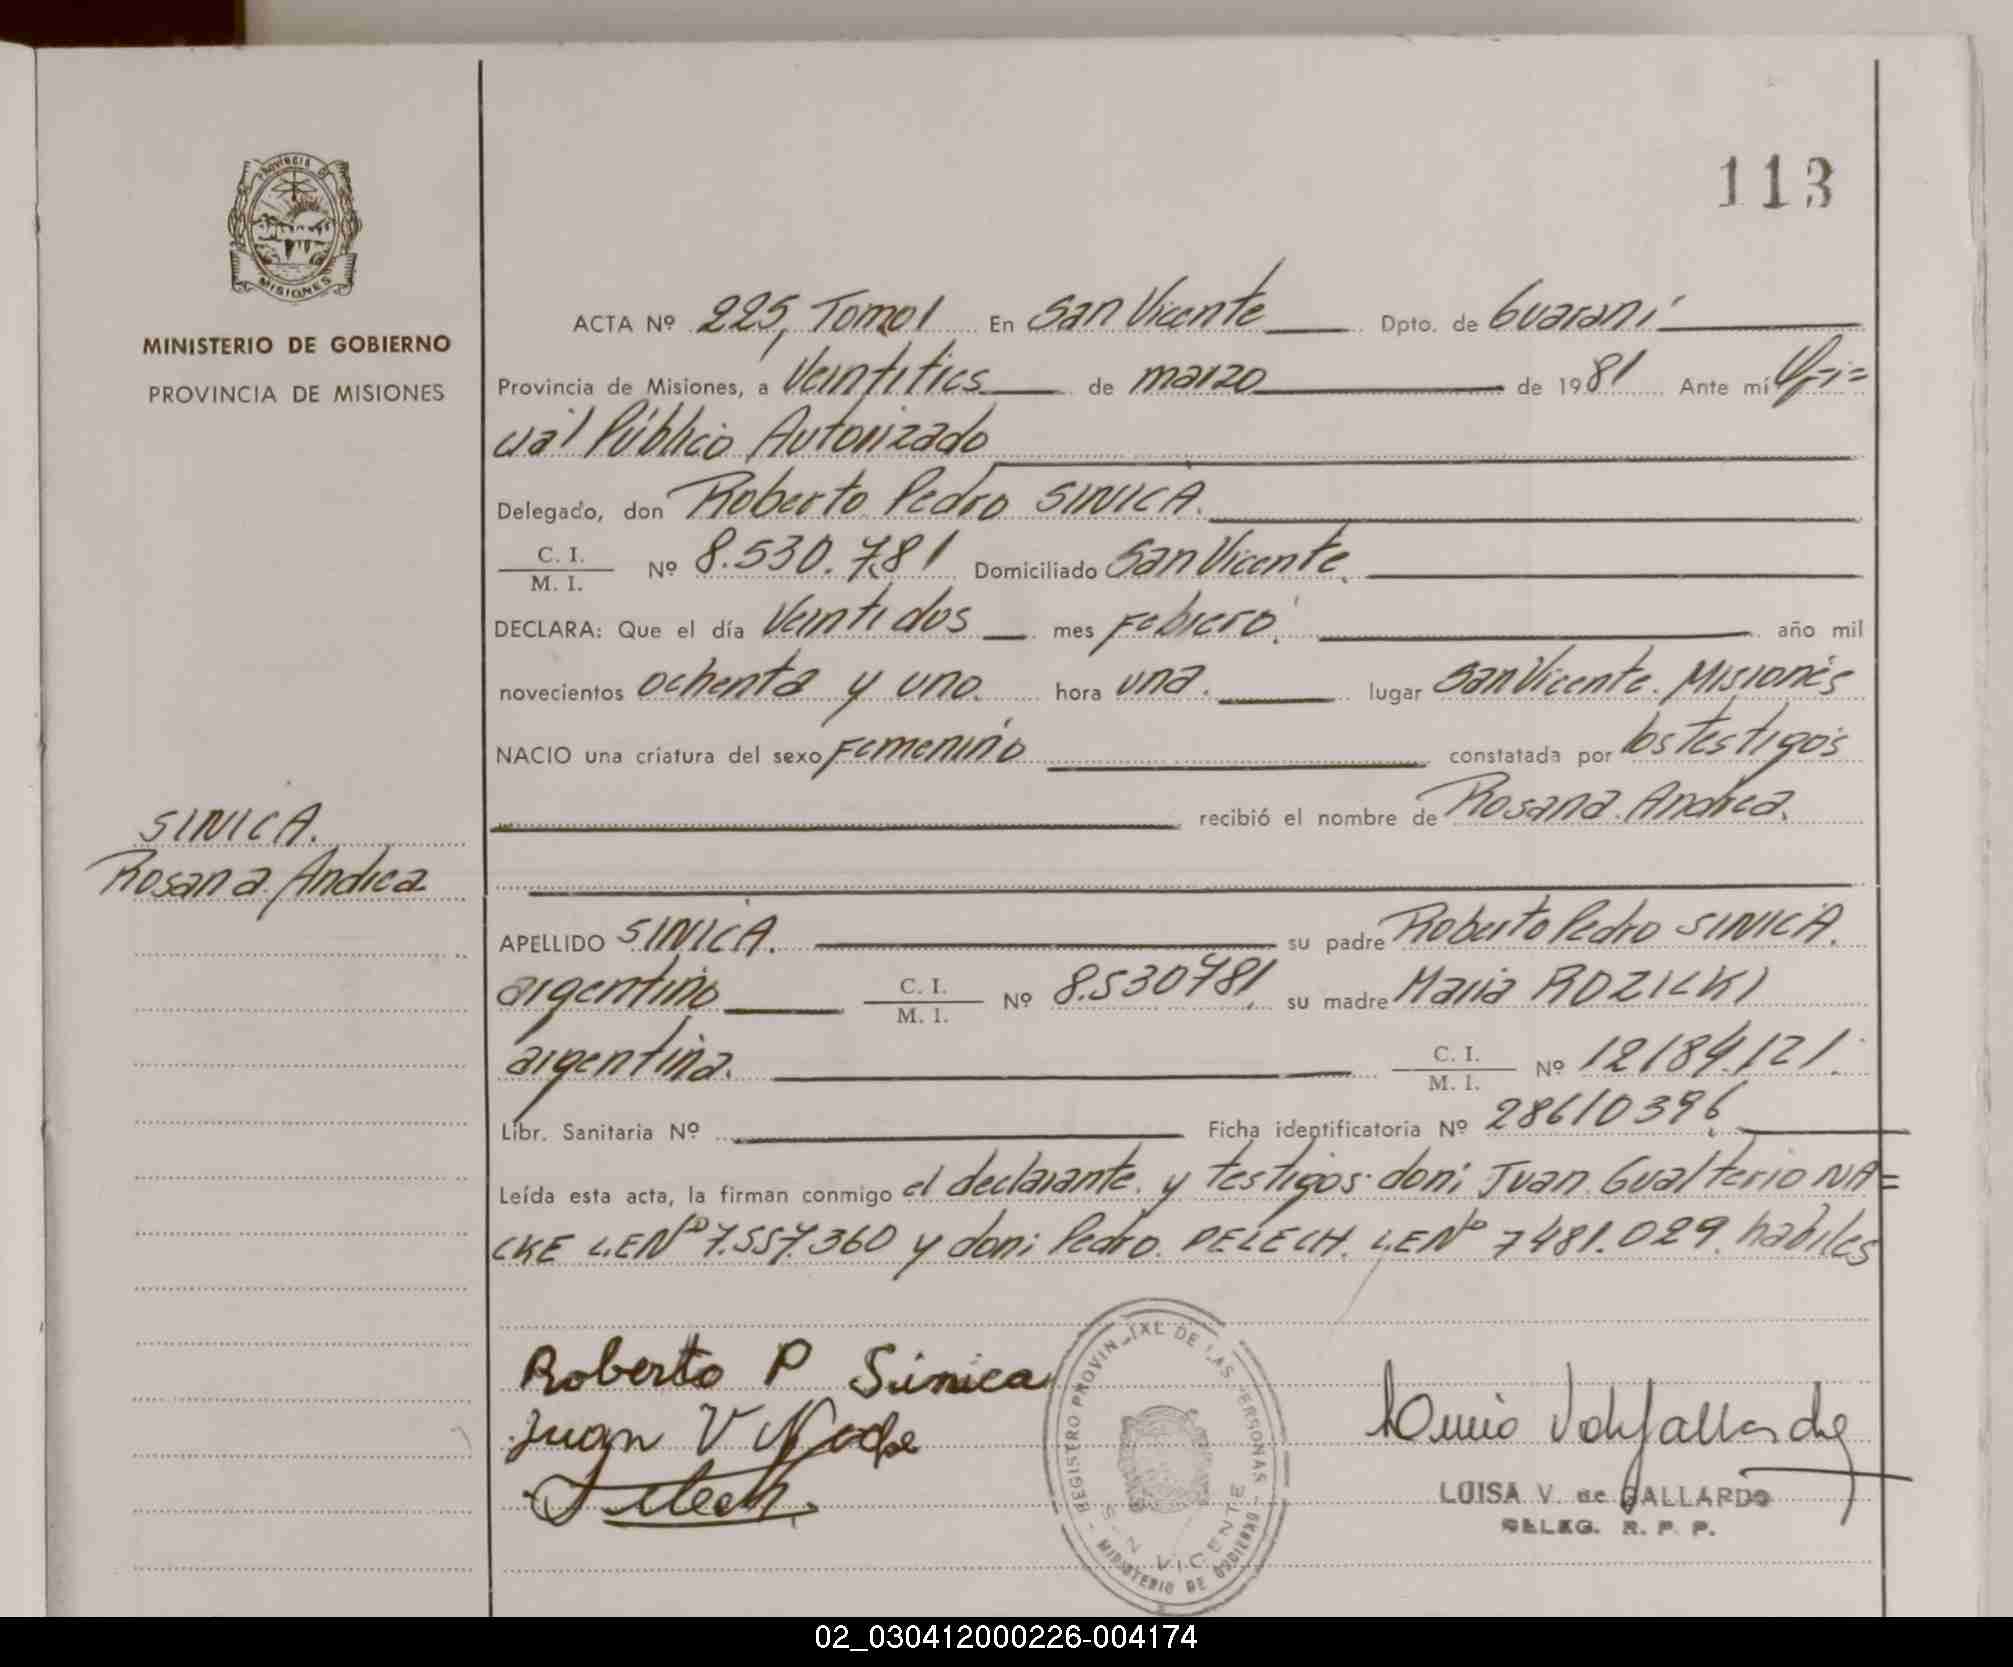 113
PROVINCIA DE
MISIONES
MINISTERIO DE GOBIERNO
PROVINCIA DE MISIONES
SINICA.
Rosana Andrea
ACTA Nº 225, Tomo I En San Vicente Dpto. de Guaraní
Provincia de Misiones, a Veintitres de marzo de 1981 Ante mí Ofi=
cial Público Autorizado
Delegado, don Roberto Pedro SINICA.
C. I.
M. I. Nº 8.530.781 Domiciliado San Vicente.
DECLARA: Que el día Veintidos mes Febrero. año mil
novecientos ochenta y uno. hora una. lugar San Vicente. Misiones
NACIO una criatura del sexo Femenino constatada por los testigos
recibió el nombre de Rosana Andrea.
APELLIDO SINICA. su padre Roberto Pedro SINICA.
argentino C. I.
M. I. Nº 8.530781. su madre Maria ROZICKI
argentina. C. I.
M. I. Nº 12184.121.
Libr. Sanitaria Nº Ficha identificatoria Nº 28610396.
Leída esta acta, la firman conmigo el declarante. y testigos: don: Juan Gualterio NA=
CKE L.E.Nº 7.557.360 y don: Pedro. PELECH. L.E.Nº 7481.029. habiles
Roberto P Sinica
Juan
REGISTRO PROVINCIAL DE LAS PERSONAS - MINISTERIO DE GOBIERNO -
VICENTE
LUISA V. de GALLARDO
DELEG. R. P. P.
02_030412000226-004174